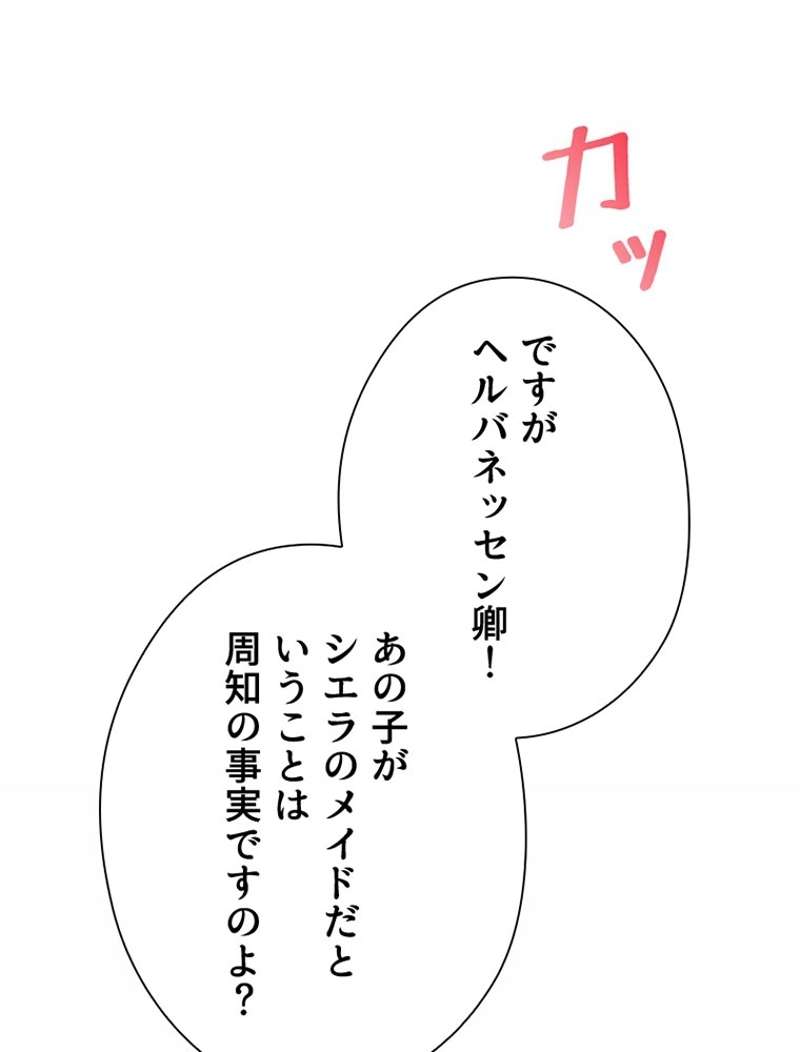 カッ
ですが
ヘルバネッセン卿！
あの子が
シエラのメイドだと
いうことは
周知の事実ですのよ？